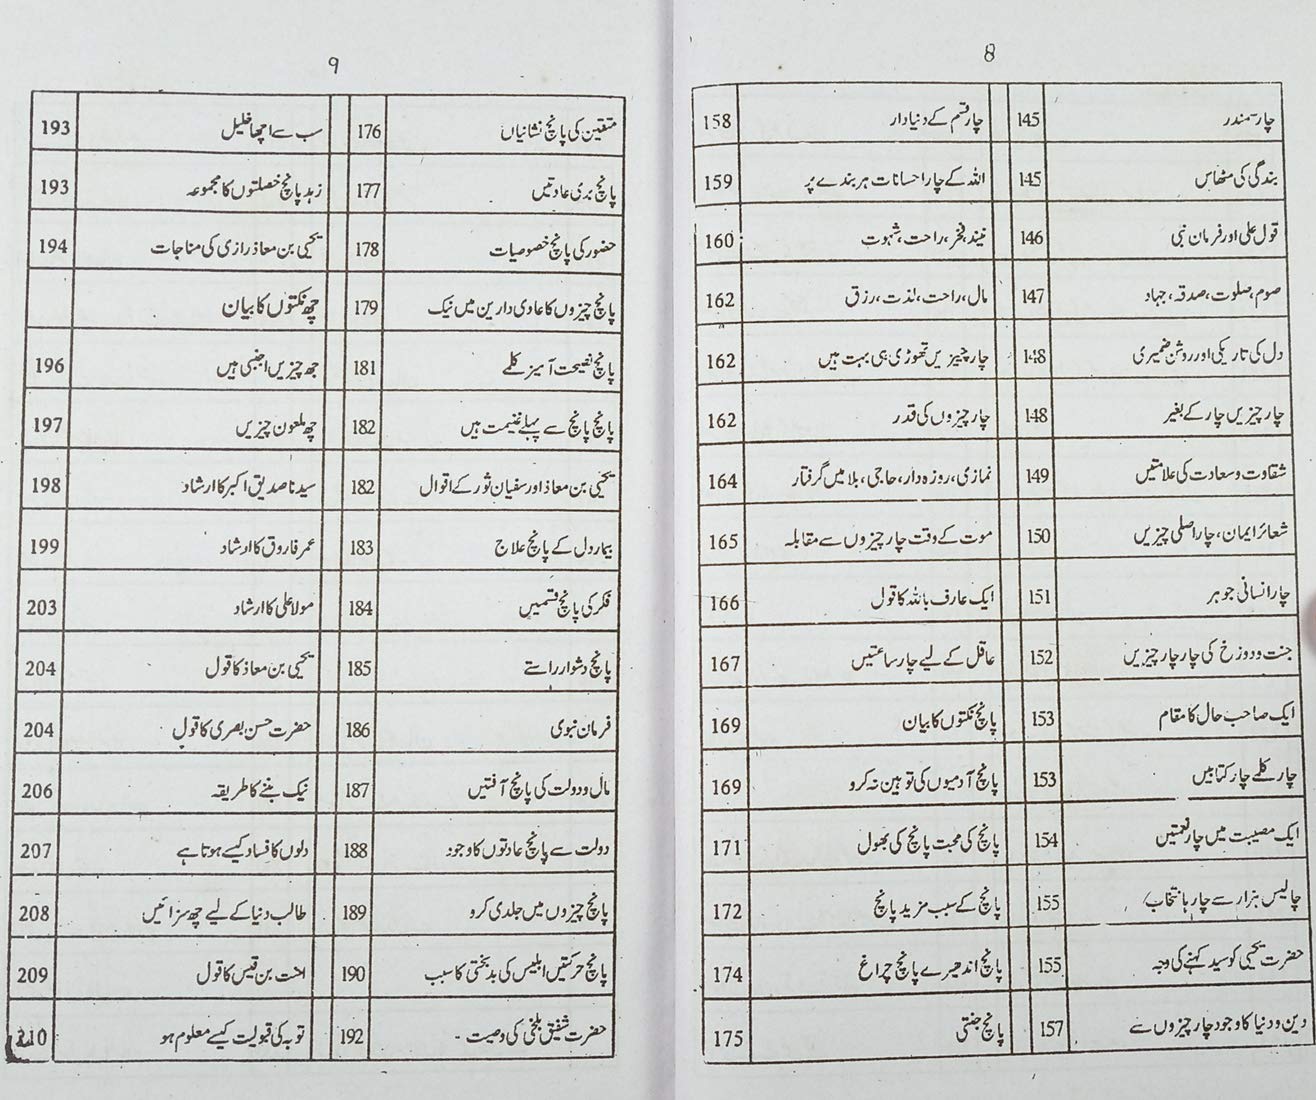 8
چار سمندر 145 چار قسم کے دنیا دار 158
بندگی کی مٹھاس 145 اللہ کے چار احسانات ہر بندے پر 159
قول علی اور فرمان نبی 146 نیند، فخر، راحت، شہوت 160
صوم، صلوت، صدقہ، جہاد 147 مال، راحت، لذت، رزق 162
دل کی تاریکی اور روشن ضمیری 148 چار چیزیں تھوڑی ہی بہت ہیں 162
چار چیزیں چار کے بغیر 148 چار چیزوں کی قدر 162
شقاوت و سعادت کی علامتیں 149 نمازی، روزہ دار، حاجی، بلا میں گرفتار 164
شعائر ایمان، چار اصلی چیزیں 150 موت کے وقت چار چیزوں سے مقابلہ 165
چار انسانی جوہر 151 ایک عارف باللہ کا قول 166
جنت و دوزخ کی چار چار چیزیں 152 عاقل کے لیے چار ساعتیں 167
ایک صاحب حال کا مقام 153 پانچ نکتوں کا بیان 169
چار کلمے چار کتابیں 153 پانچ آدمیوں کی توہین نہ کرو 169
ایک مصیبت میں چار نعمتیں 154 پانچ کی محبت پانچ کی بھول 171
چالیس ہزار سے چار ہا انتخاب 155 پانچ کے سبب مزید پانچ 172
حضرت یحیی کو سید کہنے کی وجہ 155 پانچ اندھیرے پانچ چراغ 174
دین و دنیا کا وجود چار چیزوں سے 157 پانچ جنتی 175
9
متقین کی پانچ نشانیاں 176 سب سے اچھا خلیل 193
پانچ بری عادتیں 177 زہد پانچ خصلتوں کا مجموعہ 193
حضور کی پانچ خصوصیات 178 یحیی بن معاذ رازی کی مناجات 194
پانچ چیزوں کا عادی دارین میں نیک 179 چھ نکتوں کا بیان
پانچ نصیحت آمیز کلمے 181 چھ چیزیں اجنبی ہیں 196
پانچ پانچ سے پہلے غنیمت ہیں 182 چھ ملعون چیزیں 197
یحیی بن معاذ اور سفیان ثور کے اقوال 182 سیدنا صدیق اکبر کا ارشاد 198
بیمار دل کے پانچ علاج 183 عمر فاروق کا ارشاد 199
فکر کی پانچ قسمیں 184 مولا علی کا ارشاد 203
پانچ دشوار راستے 185 یحیی بن معاذ کا قول 204
فرمان نبوی 186 حضرت حسن بصری کا قول 204
مال و دولت کی پانچ آفتیں 187 نیک بننے کا طریقہ 206
دولت سے پانچ عادتوں کا وجود 188 دلوں کا فساد کیسے ہوتا ہے 207
پانچ چیزوں میں جلدی کرو 189 طالب دنیا کے لیے چھ سزائیں 208
پانچ حرکتیں ابلیس کی بدبختی کا سبب 190 احنت بن قیس کا قول 209
حضرت شفیق بلخی کی وصیت - 192 توبہ کی قبولیت کیسے معلوم ہو 210